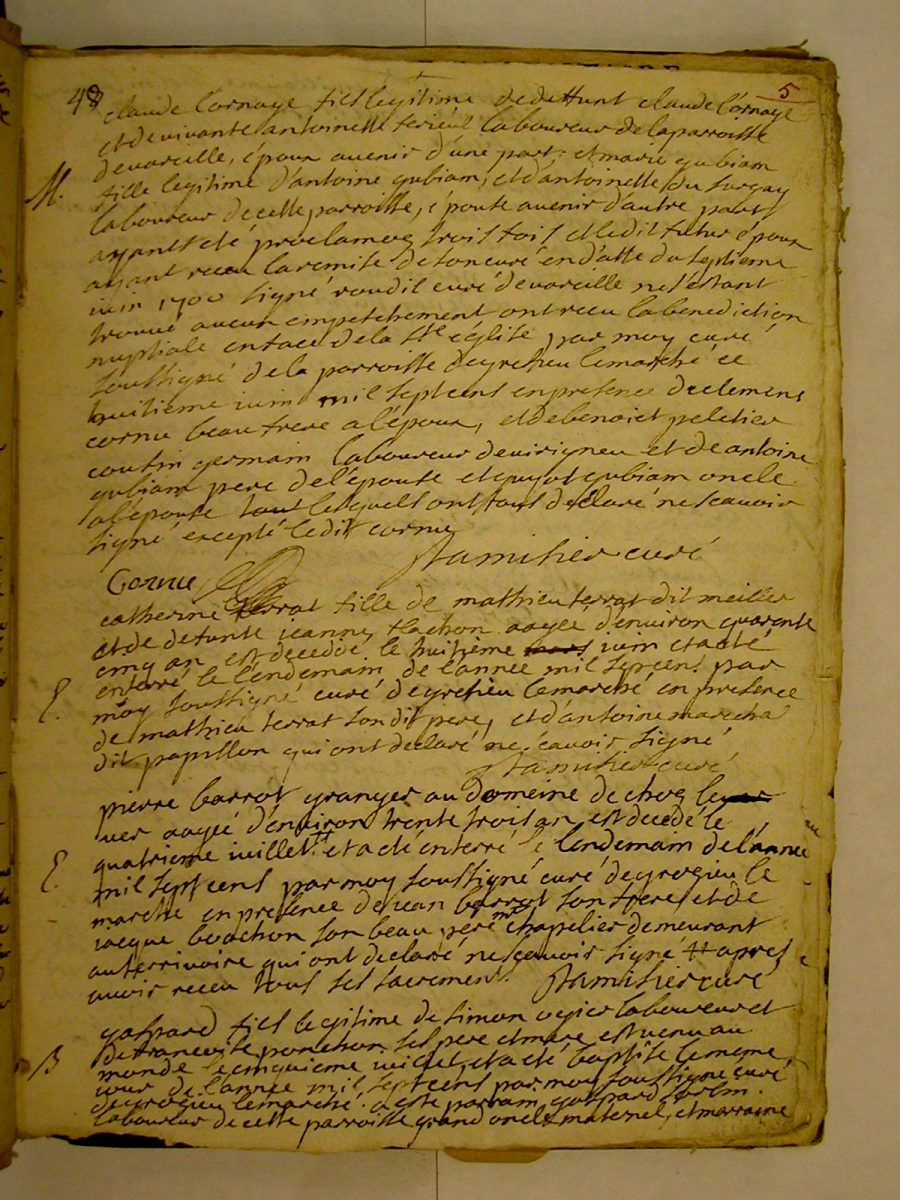 48
5
claude Cornaye fils legitime de deffunt claude Cornaye
et de vivante antoinette laboureur de la parroisse
de vareille, époux avenir d'une part: et marie gubiam
M.
fille legitime d'antoine gubiam, et d'antoinette du surgay
laboureur de cette parroisse, épouse avenir d'autre part
ayants été proclamer trois fois et ledit futur époux
ayant receu la remise de son curé en datte du septieme
iuin 1700 signé roudil curé de vareille ne s'estant
trouvé aucun empechement ont receu la benediction
nuptiale en face de la ste église par moy curé
soussigné de la parroisse de grezieu le marché ce
huitieme iuin mil sept cens en presence de clemens
cornu beau frere a l'époux, et de benoict peletier
cousin germain laboureur de virigneu et de antoine
gubiam pere de l'épouse et guyot gubiam oncle
a l'épouse tous lesquells ont tous declaré ne scavoir
signé excepté ledit cornu
curé
Cornu
catherine terrat fille de mathieu terrat dit meiller
et de defunte ieanne aagée d'environ quarente
cinq an est decedée le huitième mars iuin et a été
enterré le lendemain de l'année mil sept cens par
E.
moy soussigné curé de grezieu le marché en presence
de mathieu terrat son dit pere, et d'antoine marecha
dit papillon qui ont declaré ne scavoir signé
curé
pierre barrot granger au domeine de chez le
ver aagée d'environ trente trois an est decedé le
quatrieme iuillet # et a été enterré le lendemain de l'année
E.
mil sept cens par moy soussigné curé de grezieu le
marché en presence de iean barrot son frere et de
iacque bouchon son beau pere chapelier demeurant
au qui ont declaré ne scavoir signé # apres
avoir receu tous ses sacrement. curé
gaspard fils legitime de simon ogier laboureur et
de francoise ponchon ses pere et mere est venu au
B
monde le cinquieme iuillet, et a été baptisé le meme
iour de l'année mil sept cens par moy soussigné curé
de grezieu le marché. a été parrain gaspard
laboureur de cette parroisse grand oncle maternel, et marraine